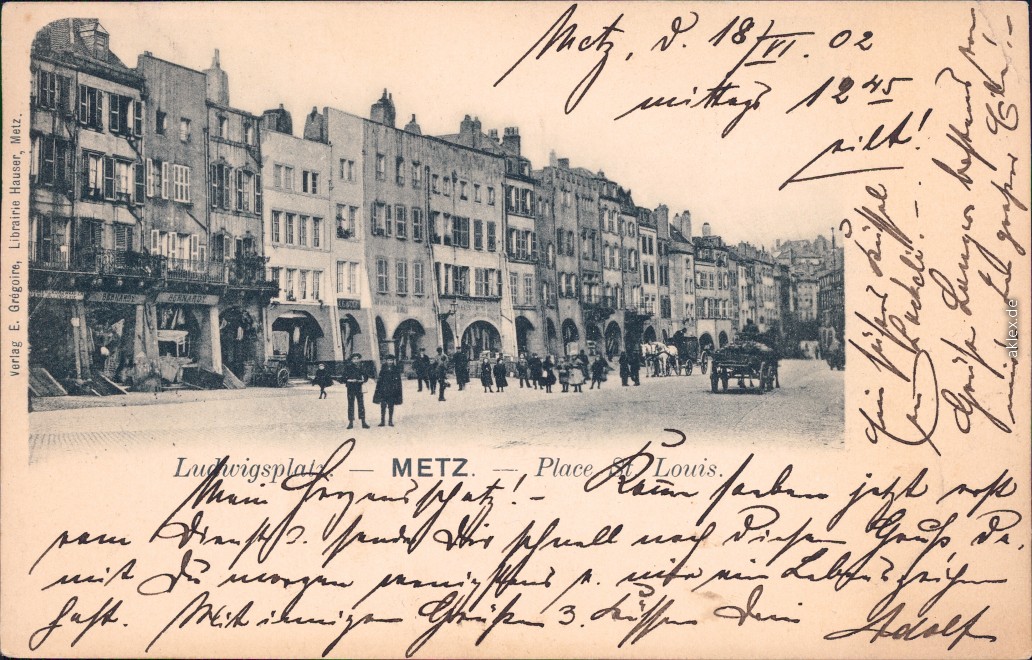 Metz, d. 18/VI. 02
mittags 12 45
eilt!
Verlag E. Grégoire, Librairie Hauser, Metz.
BERNARD
BERNARDT
Ludwigsplatz. — METZ. — Place St. Louis.
Mein Herzensschatz! - Komme soeben jetzt erst
vom Dienst u. sende Dir schnell noch diesen Gruß, da,
mit Du morgen wenigstens v. mir ein Lebenszeichen
hast. Mit innigen Grüßen u. Küssen Dein
Adolf
Ein süßes Küssel
Grüße
aklex.de